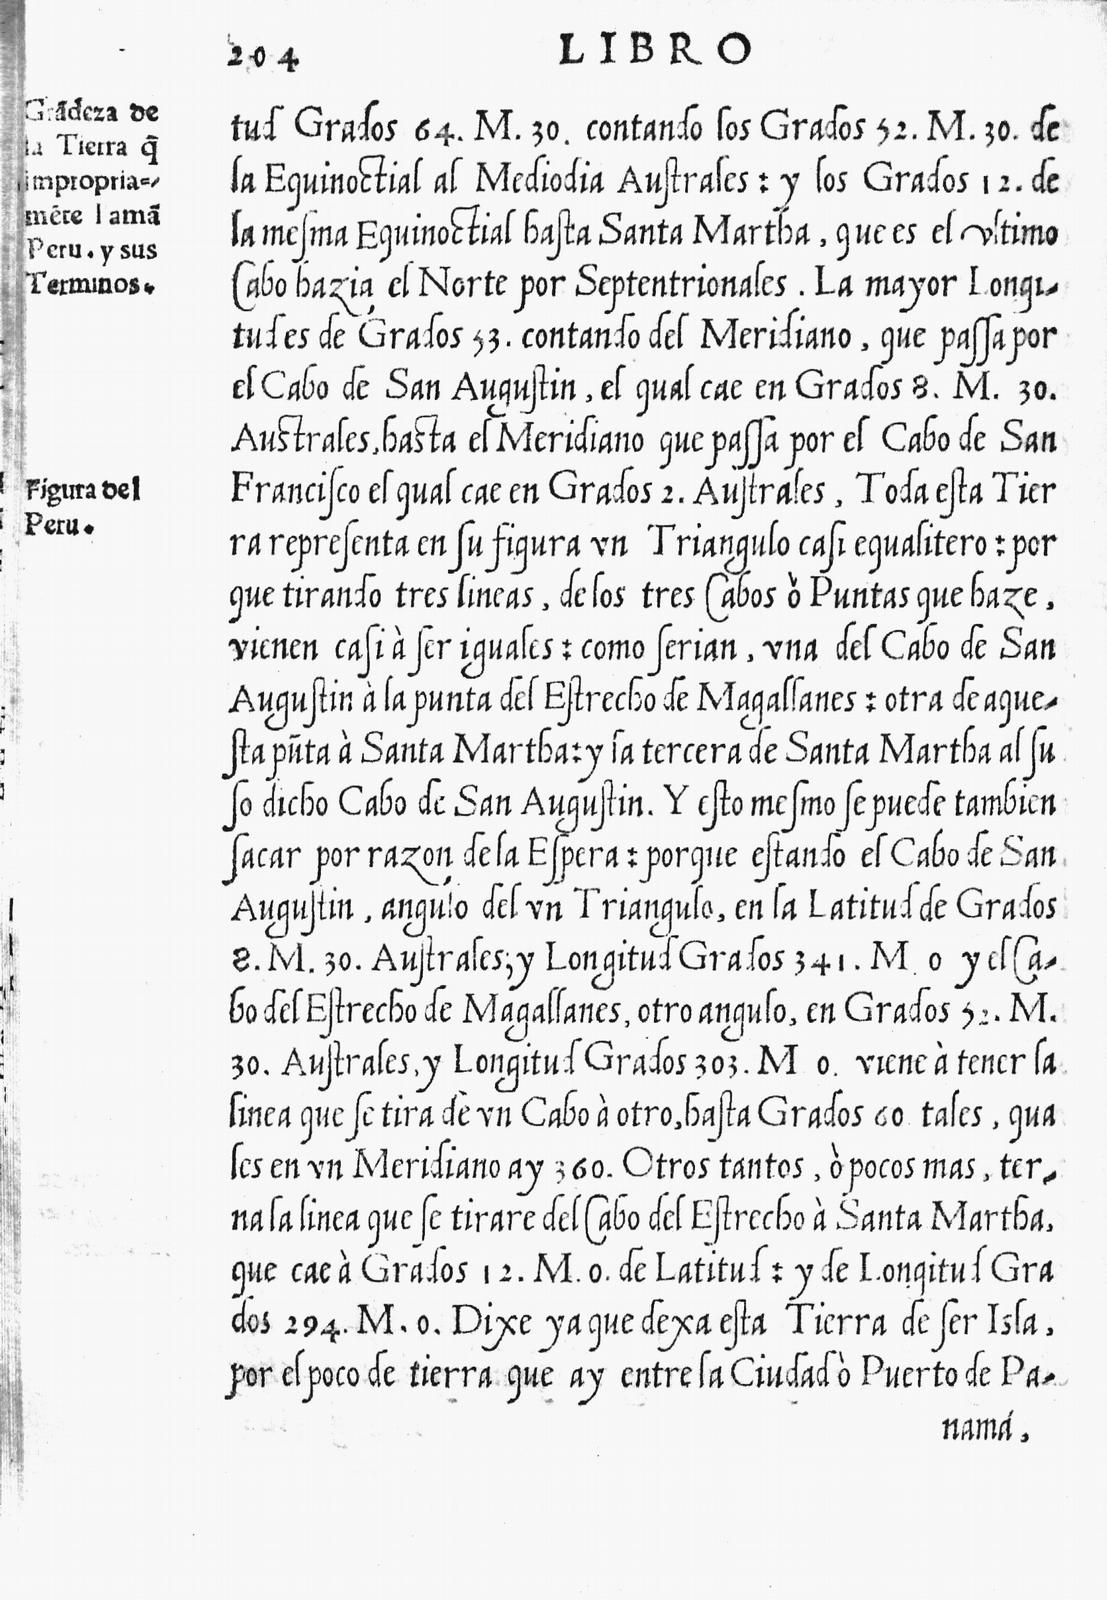 204 LIBRO
Grãdeza de
la Tierra q̃
impropria=
mẽte lamã
Peru. y sus
Terminos.
Figura del
Peru.
tud Grados 64. M. 30. contando los Grados 52. M. 30. de
la Equinoctial al Mediodia Auſtrales: y los Grados 12. de
la meſma Equinoctial haſta Santa Martha, que es el vltimo
Cabo hazia el Norte por Septentrionales. La mayor Longi-
tud es de Grados 53. contando del Meridiano, que paſſa por
el Cabo de San Auguſtin, el qual cae en Grados 8. M. 30.
Auſtrales, haſta el Meridiano que paſſa por el Cabo de San
Franciſco el qual cae en Grados 2. Auſtrales, Toda eſta Tier
ra repreſenta en ſu figura vn Triangulo caſi equalitero: por
que tirando tres lineas, de los tres Cabos ò Puntas que haze,
vienen caſi à ſer iguales: como ſerian, vna del Cabo de San
Auguſtin à la punta del Eſtrecho de Magallanes: otra de aque-
ſta pũta à Santa Martha: y la tercera de Santa Martha al ſu
ſo dicho Cabo de San Auguſtin. Y eſto meſmo ſe puede tambien
ſacar por razon de la Eſpera: porque eſtando el Cabo de San
Auguſtin, angulo del vn Triangulo, en la Latitud de Grados
8. M. 30. Auſtrales; y Longitud Grados 341. M. 0 y el Ca-
bo del Eſtrecho de Magallanes, otro angulo, en Grados 52. M.
30. Auſtrales, y Longitud Grados 303. M 0. viene à tener la
linea que ſe tira de vn Cabo à otro, haſta Grados 60 tales, qua
les en vn Meridiano ay 360. Otros tantos, ò pocos mas, ter-
na la linea que ſe tirare del Cabo del Eſtrecho à Santa Martha,
que cae à Grados 12. M. 0. de Latitud: y de Longitud Gra
dos 294. M. 0. Dixe ya que dexa eſta Tierra de ſer Isla,
por el poco de tierra que ay entre la Ciudad ò Puerto de Pa-
namá,